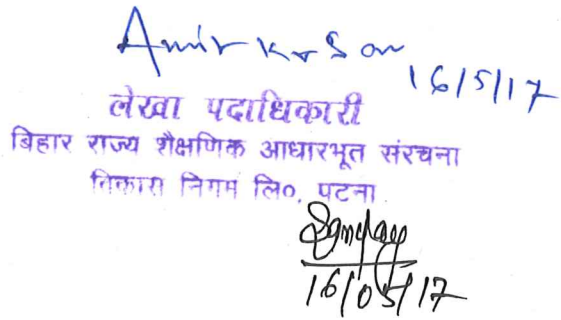 16/5/17
लेखा पदाधिकारी
बिहार राज्य शैक्षणिक आधारभूत संरचना
विकास निगम लि०, पटना
16/05/17